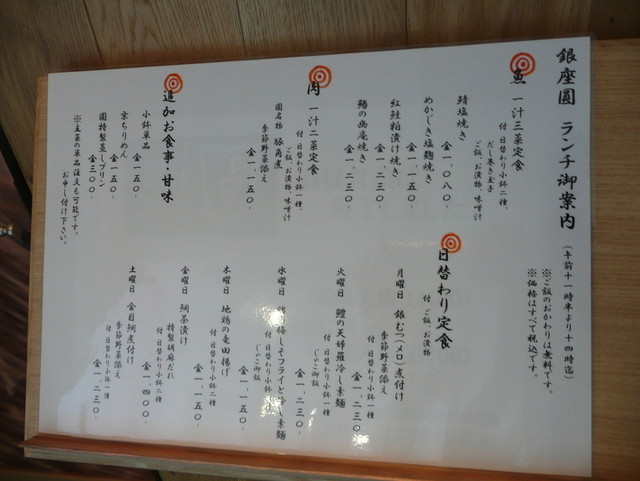 銀座圓 ランチ御案内
(午前十一時半より十四時迄)
※ご飯のおかわりは無料です。
※価格はすべて税込です。
魚 一汁三菜定食
だし巻き玉子
付 日替わり小鉢二種、
ご飯、お漬物、味噌汁
鯖塩焼き
金一、〇八〇-
めかじき塩麹焼き
金一、一五〇-
紅鮭粕漬け焼き
金一、二三〇-
鰆の幽庵焼き
金一、二三〇-
肉 一汁二菜定食
付 日替わり小鉢一種、
ご飯、お漬物、味噌汁
圓名物 豚角煮
季節野菜添え
金一、一五〇-
追加お食事・甘味
小鉢単品
金一五〇-
京ちりめん
金一五〇-
圓特製蒸しプリン
金三〇〇-
※主菜の単品注文も可能です。
お申し付け下さい。
日替わり定食
付 ご飯、お漬物
月曜日 銀むつ(メロ)煮付け
季節野菜添え
付 日替わり小鉢一種
金一、二三〇-
火曜日 鱧の天婦羅冷し素麺
付 日替わり小鉢一種
じゃこ御飯
金一、二三〇-
水曜日 しそフライと冷し素麺
付 日替わり小鉢一種
じゃこ御飯
金一、二三〇-
木曜日 地鶏の竜田揚げ
付 日替わり小鉢二種
金一、一五〇-
金曜日 鯛茶漬け
特製胡麻だれ
付 日替わり小鉢二種
金一、四〇〇-
土曜日 金目鯛煮付け
季節野菜添え
付 日替わり小鉢一種
金一、二三〇-